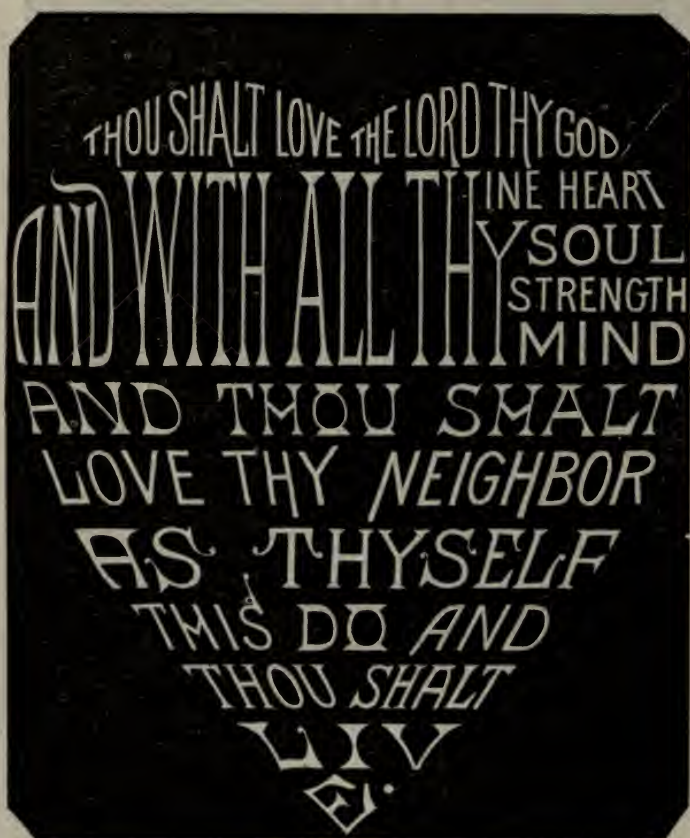 THOU SHALT LOVE THE LORD THY GOD
AND WITH ALL THINE HEART
Y SOUL
STRENGTH
MIND
AND THOU SHALT
LOVE THY NEIGHBOR
AS THYSELF
THIS DO AND
THOU SHALT
LIV
E.